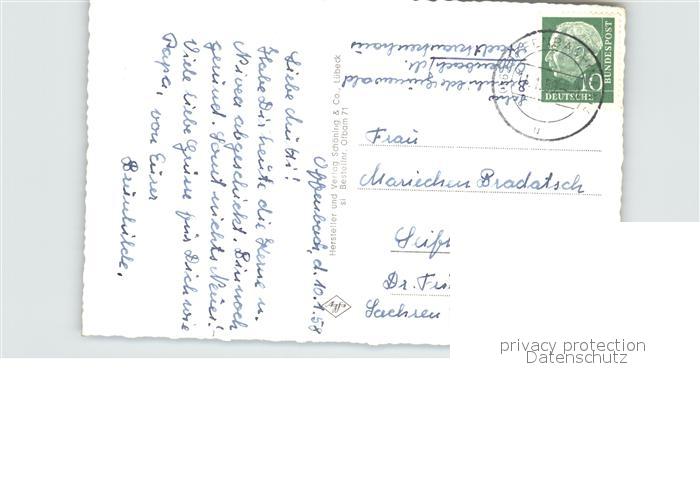 Offenbach, d. 10.1.58
Liebe Mutti!
Habe Dir heute die Sterne u.
Nivea abgeschickt. Bin noch
gesund. Sonst nichts Neues!
Viele liebe Grüsse für Dich wie
Papa, von Eurer
Brunhilde.
Hersteller und Verlag Schöning & Co., Lübeck
Bestellnr. Ofbam 71
Brunhilde Grünwald
Offenbach/M.
Stadtkrankenhaus
DEUTSCHE
BUNDESPOST
10
Frau
Mariechen Bradatsch
Seif
Dr. Fri
Sachsen
privacy protection
Datenschutz